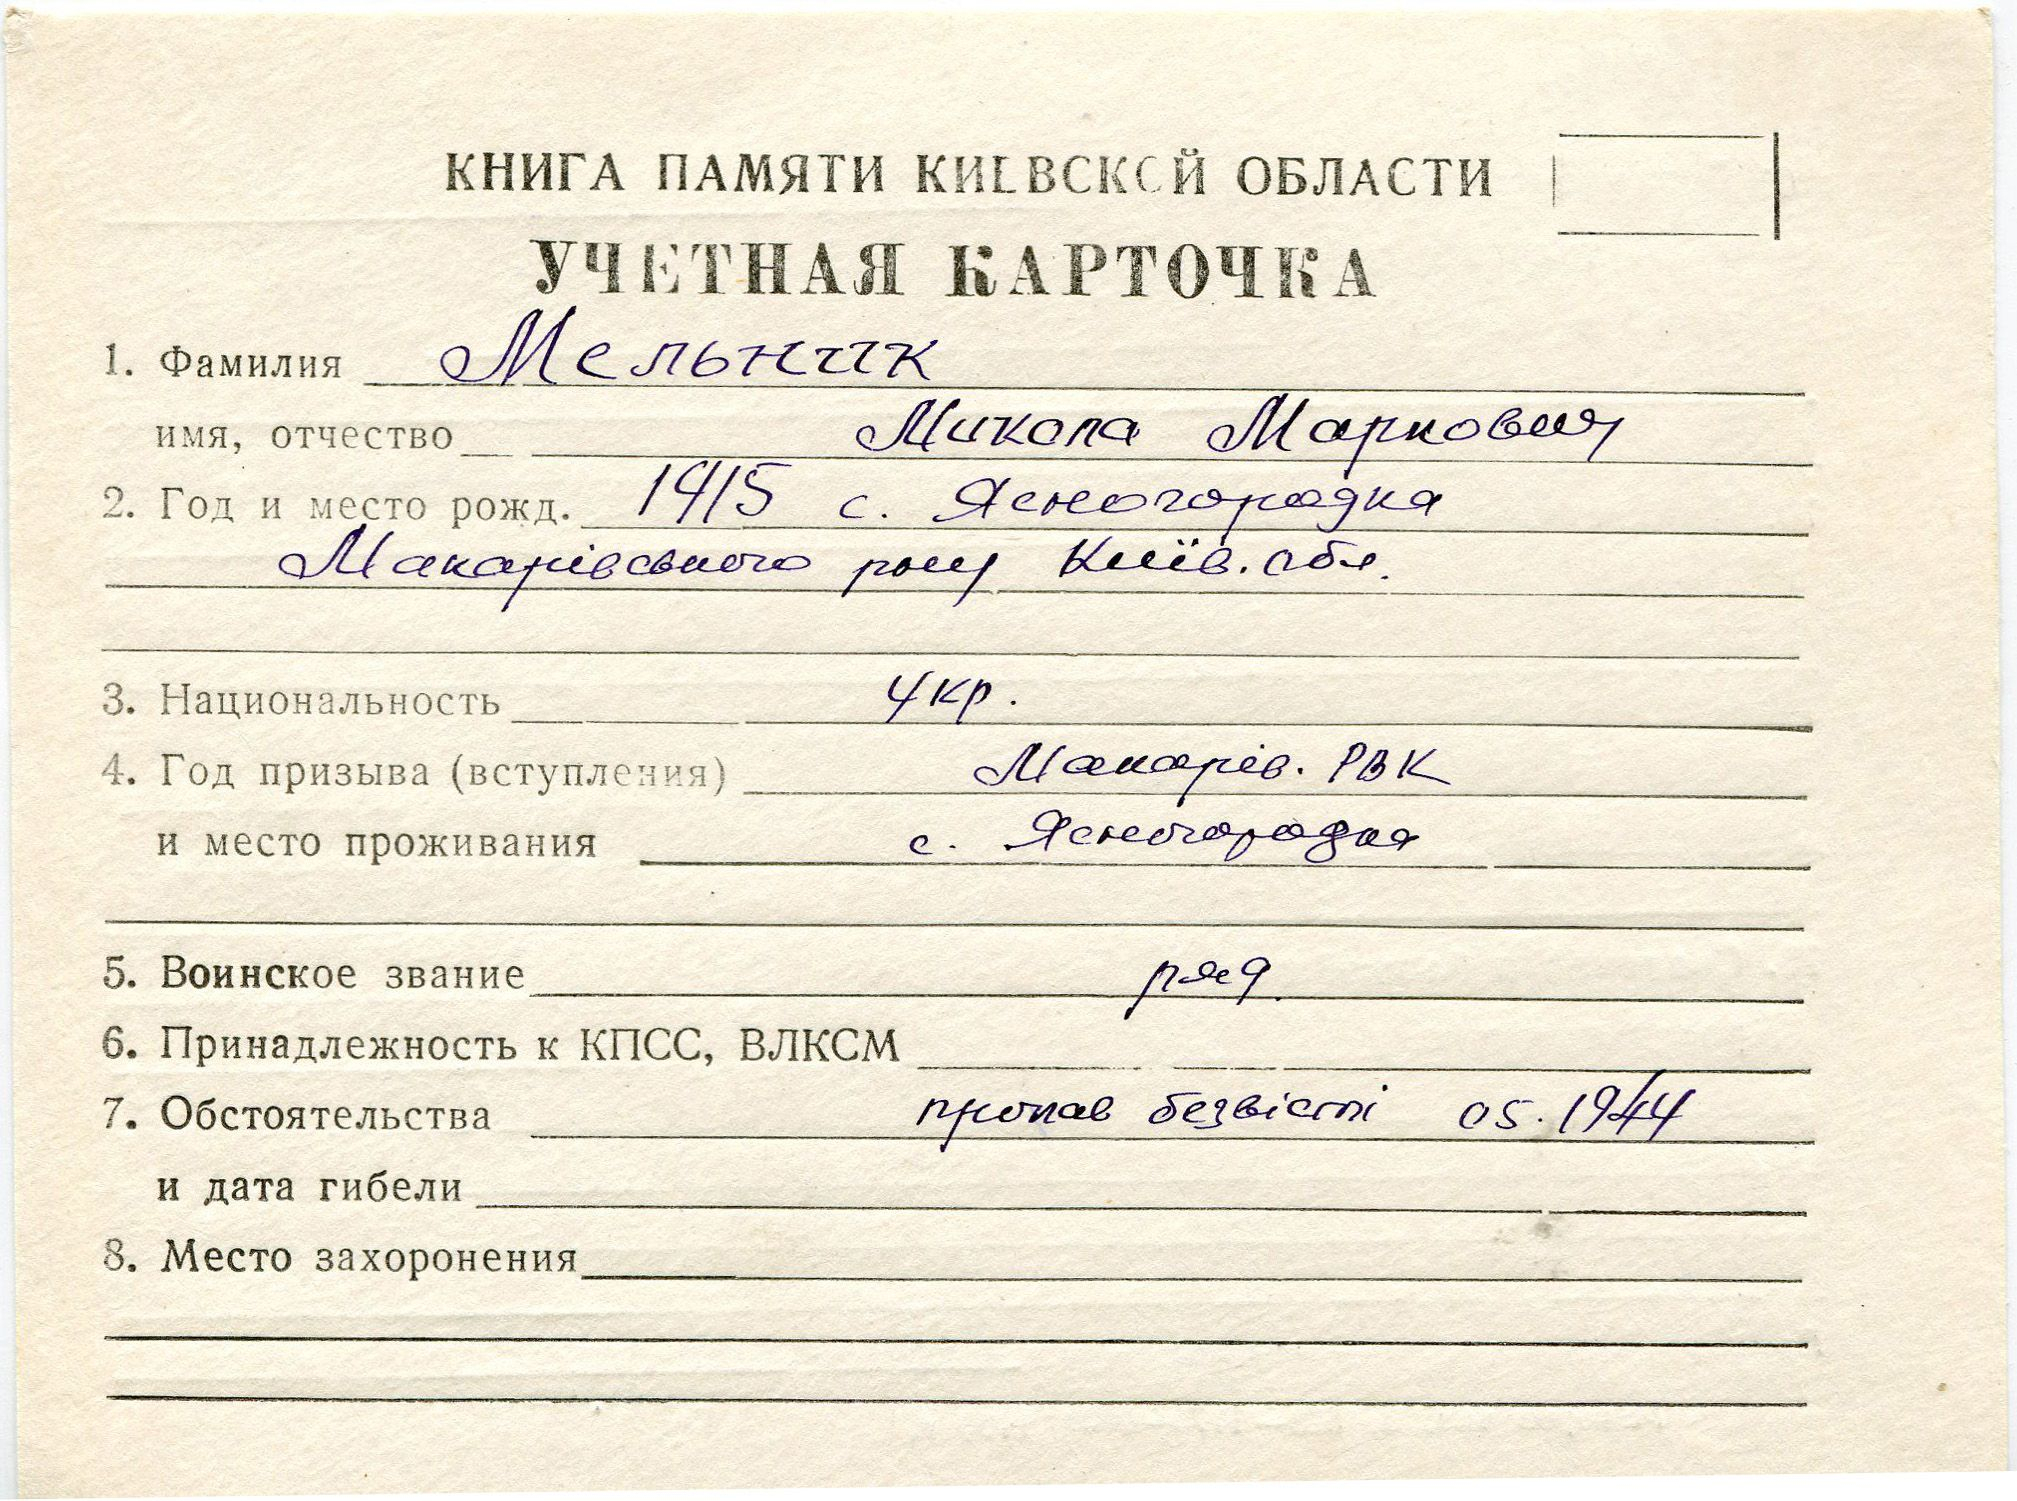 КНИГА ПАМЯТИ КИЕВСКОЙ ОБЛАСТИ
УЧЕТНАЯ КАРТОЧКА
1. Фамилия Мельник
имя, отчество Микола Маркович
2. Год и место рожд. 1915 с. Ясногородка
Макарівського р-ну Київ. обл.
3. Национальность укр.
4. Год призыва (вступления) Макарів. РВК
и место проживания с. Ясногородка
5. Воинское звание ряд.
6. Принадлежность к КПСС, ВЛКСМ
7. Обстоятельства пропав безвісті 05.1944
и дата гибели
8. Место захоронения